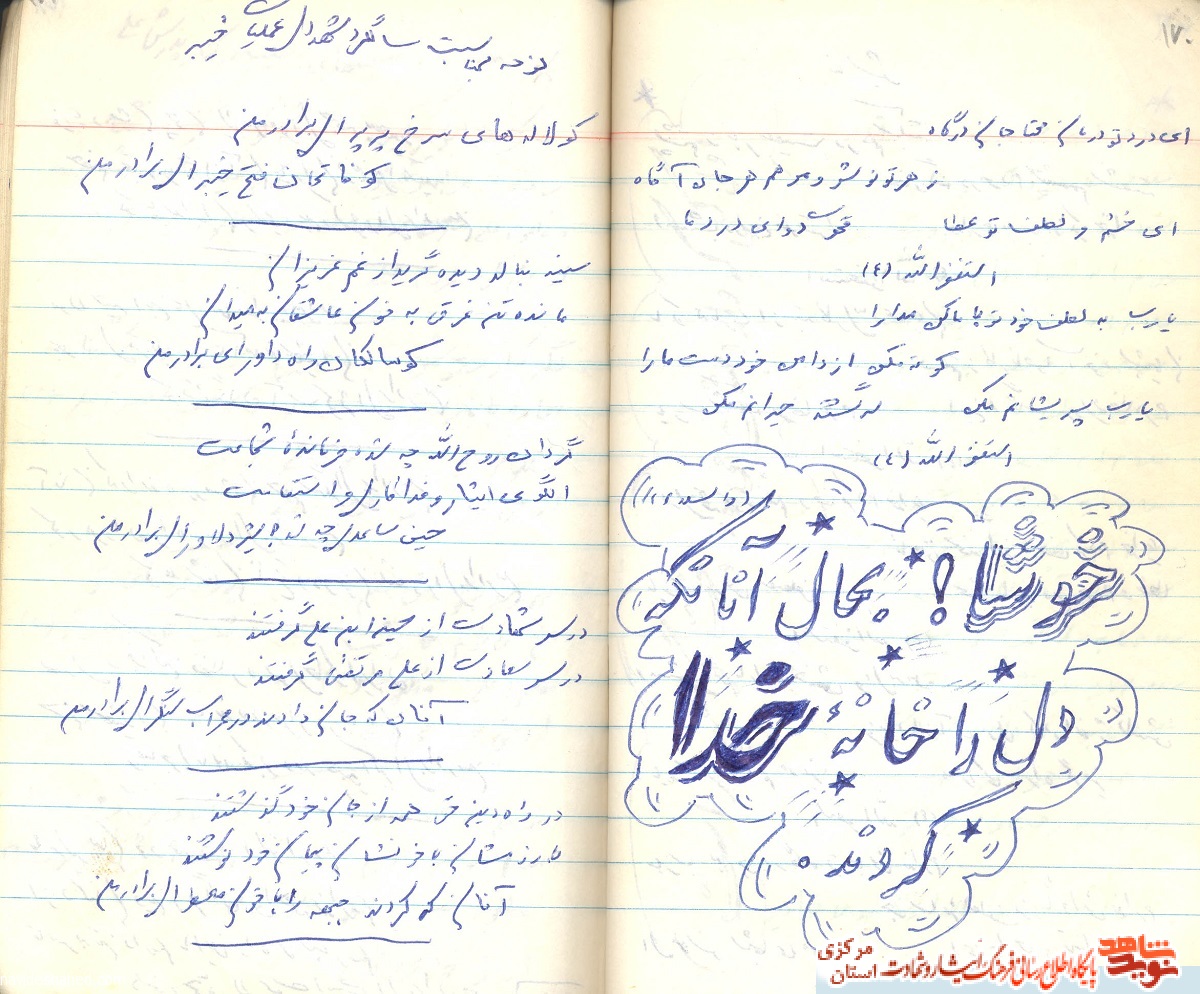 ۱۷۰
ای درد تو درمان محتاجان درگاه
زهر تو نوش و مرهم هر جان آگاه
ای خشم و لطف تو عطا قهرت دوای درد ما
استغفرالله (٤)
یارب به لطف خود تو با ما کن مدارا
کوته مکن از دامن خود دست ما را
یارب پریشانم مکن سرگشته حیرانم مکن
استغفرالله (٤)
خوشا! بحال آنانکه
دل را خانهٔ خدا
کردند
نوحه بمناسبت سالگرد شهدای عملیات خیبر
کو لاله های سرخ پرپر ای برادر من
کو فاتحان فتح خیبر ای برادر من
سینه بنالد دیده گرید از غم عزیزان
مانده تن غرق به خون عاشقان به میدان
کو سالکان راه داور ای برادر من
گردان روح الله چه شده فرماندهٔ شجاعت
الگوی ایثار و فداکاری و استقامت
چه شد دلاور ای برادر من
درس شهادت از حسین ابن علی گرفتند
درس سعادت از علی مرتضی گرفتند
آنان که جان دادند در محراب سنگر ای برادر من
در راه دین حق همه از جان خود گذشتند
با رزمشان با خونشان پیمان خود نوشتند
آنان که کردند جبهه را با خون معطر ای برادر من
نوید شاهد
پایگاه اطلاع رسانی فرهنگ ایثار و شهادت
استان مرکزی